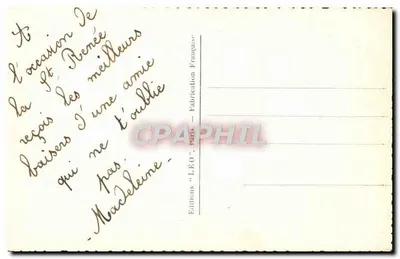 A
l'occasion de
la St Renée
reçois les meilleurs
baisers d'une amie
qui ne t'oublie
pas.
- Madeleine -
Editions "LÉO", Paris — Fabrication Française
CPARPHIL.com